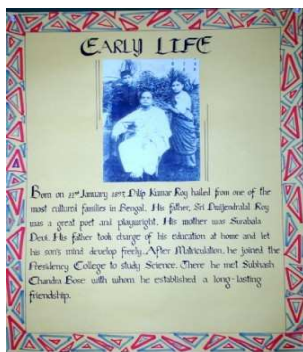 EARLY LIFE
Born on 22nd January 1897, Dilip Kumar Roy hailed from one of the
most cultural families in Bengal. His father, Sri Dwijendralal Roy
was a great poet and playwright. His mother was Surabala
Devi. His father took charge of his education at home and let
his son's mind develop freely. After Matriculation, he joined the
Presidency College to study Science. There he met Subhash
Chandra Bose with whom he established a long-lasting
friendship.